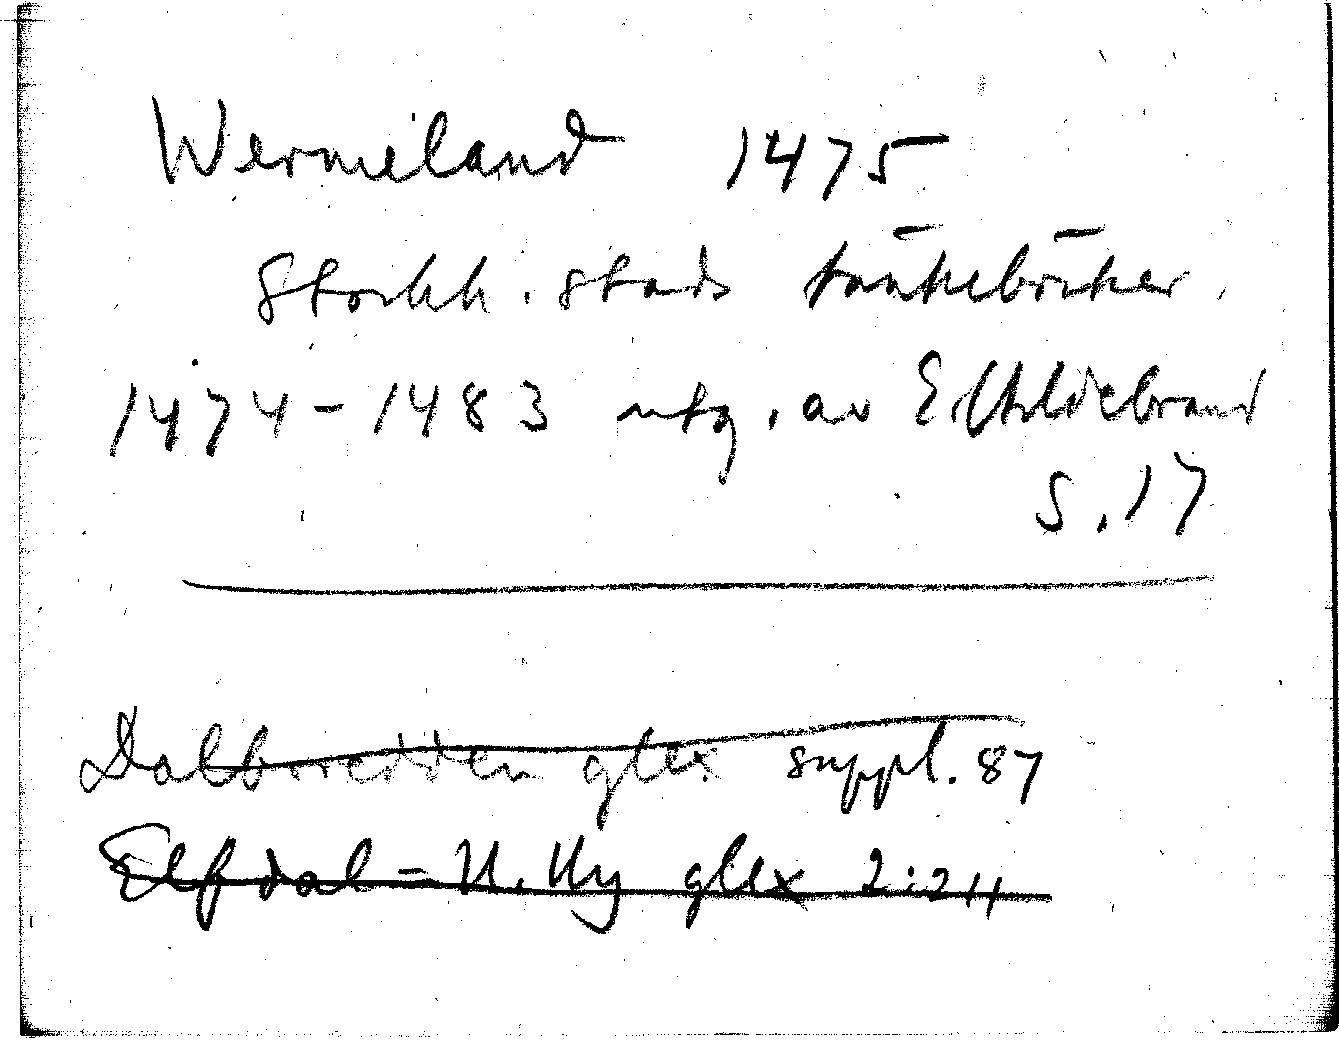 Wermeland 1475
Stockh. stads tänkeböcker.
1474-1483 utg. av E. Hildebrand
S. 17
Dalboredden glex suppl. 87
Elfdal = N. Ny glex 2:211